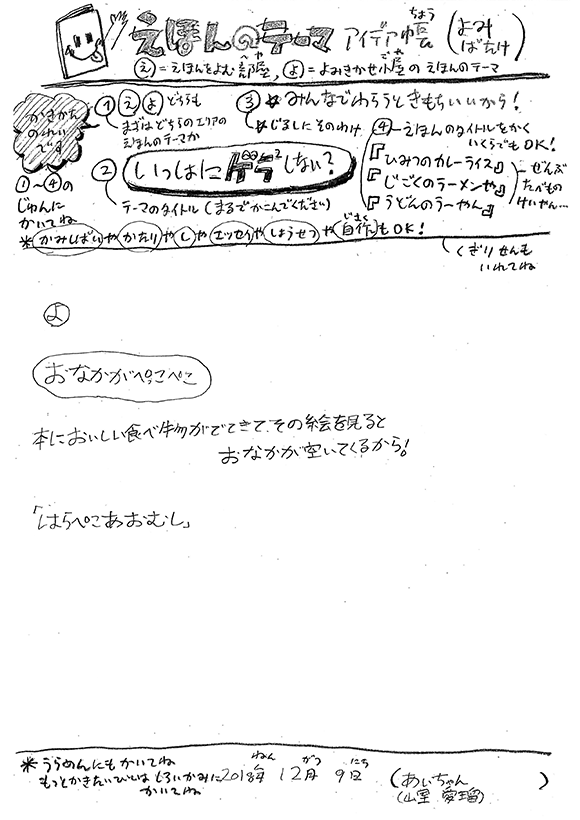 えほん@テーマ アイデア帳 (よみばなけ)
ちょう
え=えほんをよむ部屋, よ=よみきかせ小屋のえほんのテーマ
かきかたのれいです
①~④のじゅんにかいてね
① え よ どちらも
まずはどちらのエリアのえほんのテーマか
② いっしょに ゲラ² しない?
テーマのタイトル(まるでかこんでください)
③ ★みんなでわらうときもちいいから!
★じるしにそのわけ
④ーえほんのタイトルをかく
いくらでもOK!
『ひみつのカレーライス』
『じごくのラーメンや』
『うどんのうーやん』
ぜんぶたべもの
けいやん…
*かみしばいやかたりやしやエッセイやしょうせつや自作もOK!
くぎりせんも
いれてね
よ
おなかがぺっこぺこ
本においしい食べ物がでてきて、その絵を見ると
おなかが空いてくるから!
「はらぺこあおむし」
*うらめんにもかいてね
もっとかきたいひとはしろいかみに
かいてね
2018年 12月 9日
ねん がつ にち
(あいちゃん)